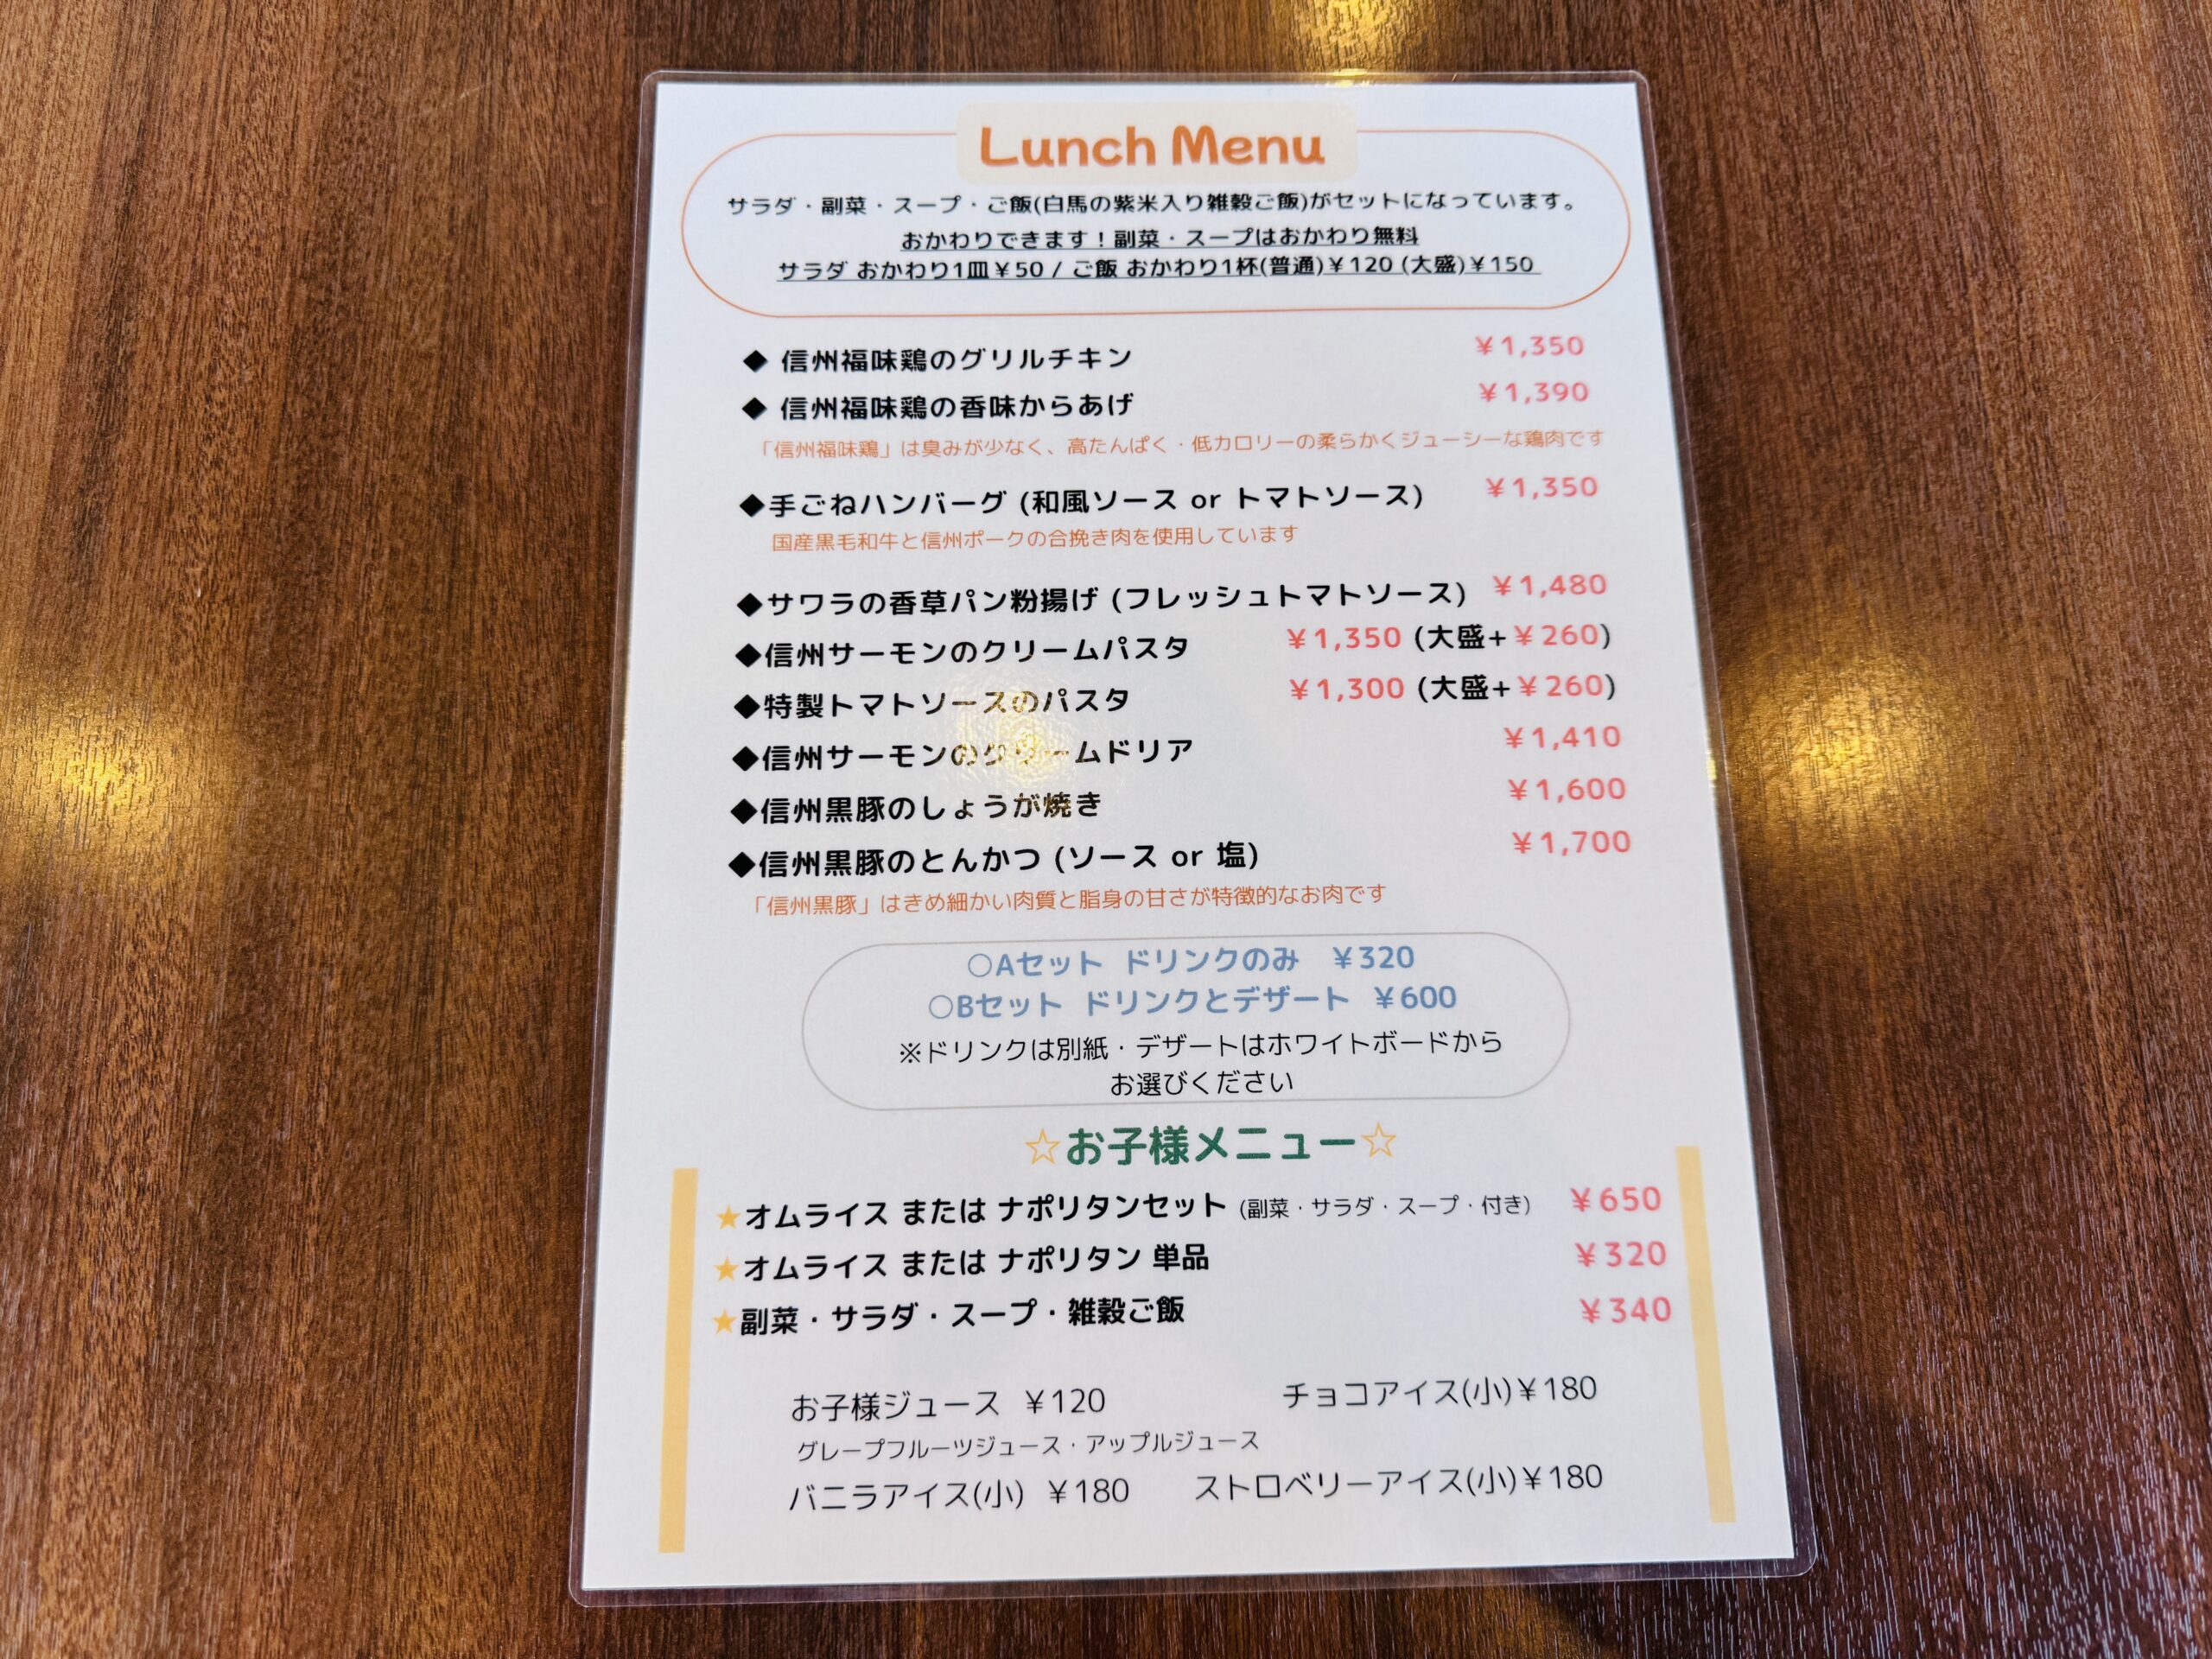 Lunch Menu
サラダ・副菜・スープ・ご飯(白馬の紫米入り雑穀ご飯)がセットになっています。
おかわりできます！副菜・スープはおかわり無料
サラダ おかわり1皿￥50 / ご飯 おかわり1杯(普通)￥120 (大盛)￥150
◆ 信州福味鶏のグリルチキン ￥1,350
◆ 信州福味鶏の香味からあげ ￥1,390
「信州福味鶏」は臭みが少なく、高たんぱく・低カロリーの柔らかくジューシーな鶏肉です
◆手ごねハンバーグ (和風ソース or トマトソース) ￥1,350
国産黒毛和牛と信州ポークの合挽き肉を使用しています
◆サワラの香草パン粉揚げ (フレッシュトマトソース) ￥1,480
◆信州サーモンのクリームパスタ ￥1,350 (大盛+￥260)
◆特製トマトソースのパスタ ￥1,300 (大盛+￥260)
◆信州サーモンのクリームドリア ￥1,410
◆信州黒豚のしょうが焼き ￥1,600
◆信州黒豚のとんかつ (ソース or 塩) ￥1,700
「信州黒豚」はきめ細かい肉質と脂身の甘さが特徴的なお肉です
○Aセット ドリンクのみ ￥320
○Bセット ドリンクとデザート ￥600
※ドリンクは別紙・デザートはホワイトボードから
お選びください
☆お子様メニュー☆
★オムライス または ナポリタンセット (副菜・サラダ・スープ・付き) ￥650
★オムライス または ナポリタン 単品 ￥320
★副菜・サラダ・スープ・雑穀ご飯 ￥340
お子様ジュース ￥120 チョコアイス(小)￥180
グレープフルーツジュース・アップルジュース
バニラアイス(小) ￥180 ストロベリーアイス(小)￥180